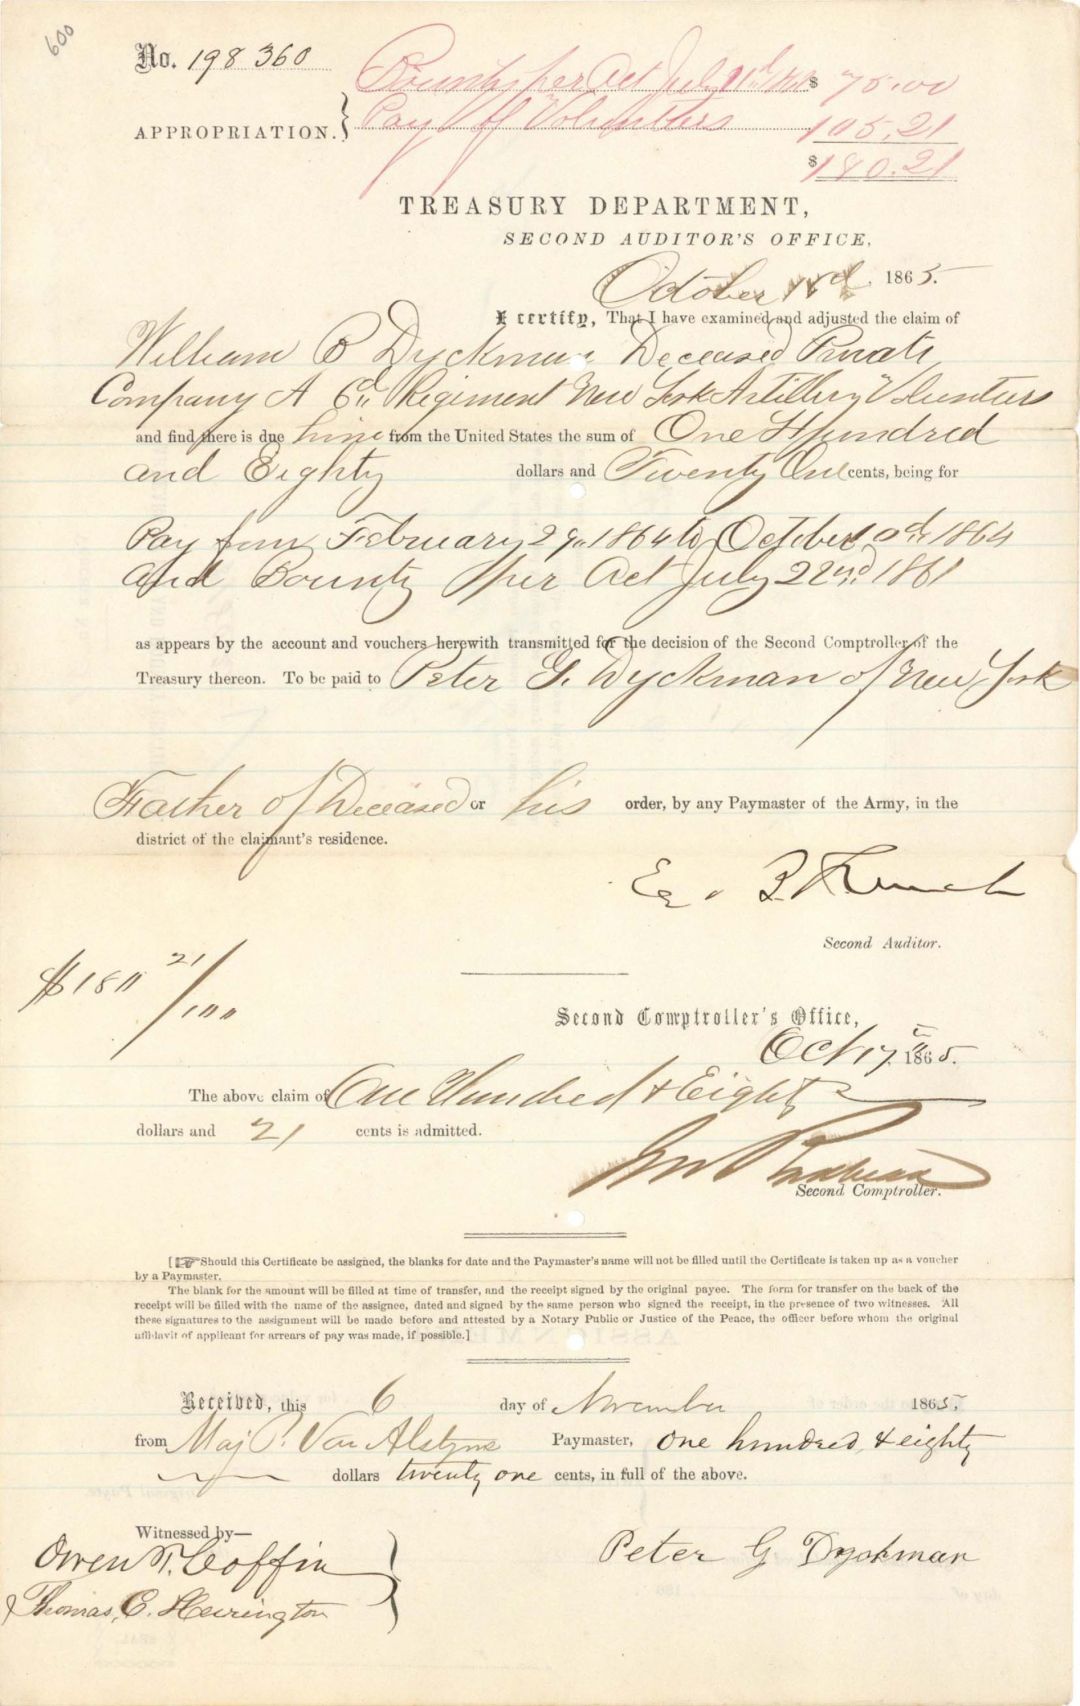 600
No. 198 360
Bounty per Act July $ 75.00
APPROPRIATION. Pay of Volunteers 105.21
$ 180.21
TREASURY DEPARTMENT,
SECOND AUDITOR'S OFFICE,
October 1865.
I certify, That I have examined and adjusted the claim of
William B Dyckman Deceased Private
Company A 6" Regiment New York Artillery Volunteers
and find there is due him from the United States the sum of One Hundred
and Eighty dollars and Twenty One cents, being for
Pay from February 29" 1864 to October 1864
and Bounty per Act July 22nd 1861
as appears by the account and vouchers herewith transmitted for the decision of the Second Comptroller of the
Treasury thereon. To be paid to Peter G. Dyckman of New York
Father of Deceased or his order, by any Paymaster of the Army, in the
district of the claimant's residence.
Second Auditor.
$180 21/100
Second Comptroller's Office,
Oct 17" 1865.
The above claim of One Hundred & Eighty
dollars and 21 cents is admitted.
Second Comptroller.
[☞ Should this Certificate be assigned, the blanks for date and the Paymaster's name will not be filled until the Certificate is taken up as a voucher
by a Paymaster.
The blank for the amount will be filled at time of transfer, and the receipt signed by the original payee. The form for transfer on the back of the
receipt will be filled with the name of the assignee, dated and signed by the same person who signed the receipt, in the presence of two witnesses. All
these signatures to the assignment will be made before and attested by a Notary Public or Justice of the Peace, the officer before whom the original
affidavit of applicant for arrears of pay was made, if possible.]
Received, this 6 day of November 1865.
from Maj P. Van Alstyne Paymaster, One hundred & eighty
dollars twenty one cents, in full of the above.
Witnessed by—
Owen T. Coffin
Peter G Dyckman
Thomas. C. Herrington